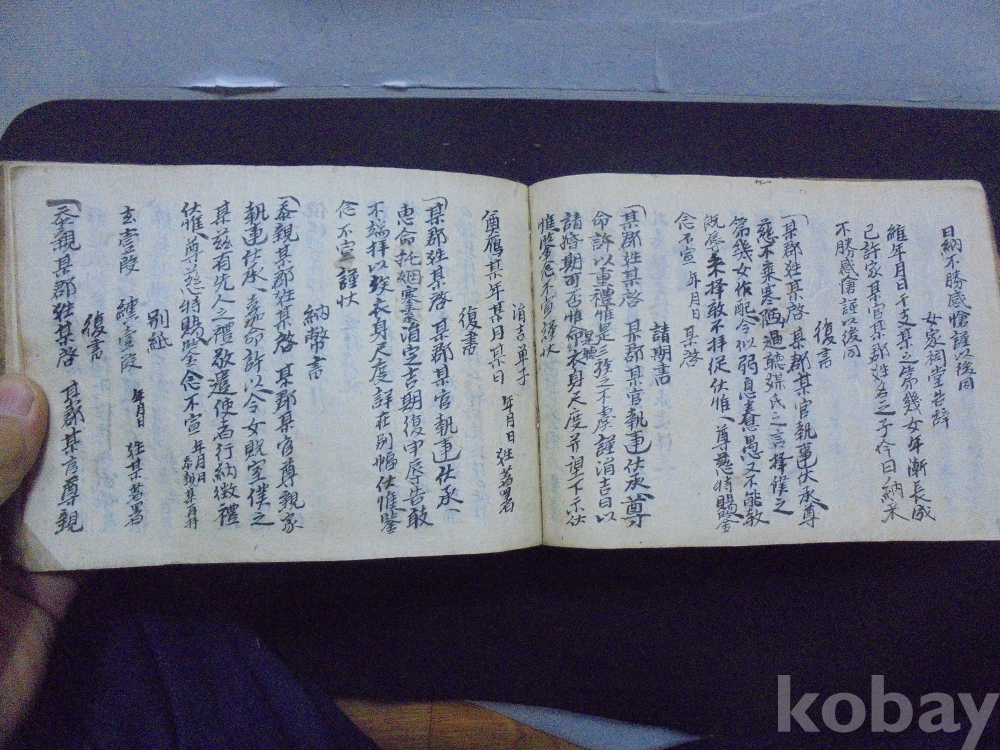 日納不勝感愴謹以後同
女家祠堂告辭
維年月日干支某之第幾女年漸長成
已許家某官某郡姓名之子今日納采
不勝感愴謹以後同
復書
某郡姓某啓 某郡某官執事伏承 尊
慈不棄寒陋過聽媒氏之言擇僕之
第幾女作配令似弱息惷愚又不能敎
旣辱采擇敢不拜從伏惟 尊慈特賜鑒
念不宣 年月日 某啓
請期書
某郡姓某啓 某郡某官執事伏承 尊
命許以重禮惟是三族之不虞謹涓吉日以
請婚期可否惟命 衣身尺度並望下示伏
惟鑒念不宣謹狀
涓吉單子
奠鴈某年某月某日 年月日 姓名署
復書
某郡姓某啓 某郡某官執事伏承
惠命托姻寒門涓定吉期復用辱告敢
不端拜以俟衣身尺度詳在別幅伏惟鑒
念不宣謹狀
納幣書
忝親某郡姓某啓 某郡某官尊親家
執事伏承 嘉命許以令女貺室僕之
某玆有先人之禮敬遣使者行納徵禮
伏惟 尊慈特賜鑒念不宣 年月日
別紙
玄壹段 纁壹段 年月日 姓某着署
復書
忝親某郡姓某啓 某郡某官尊親
kobay